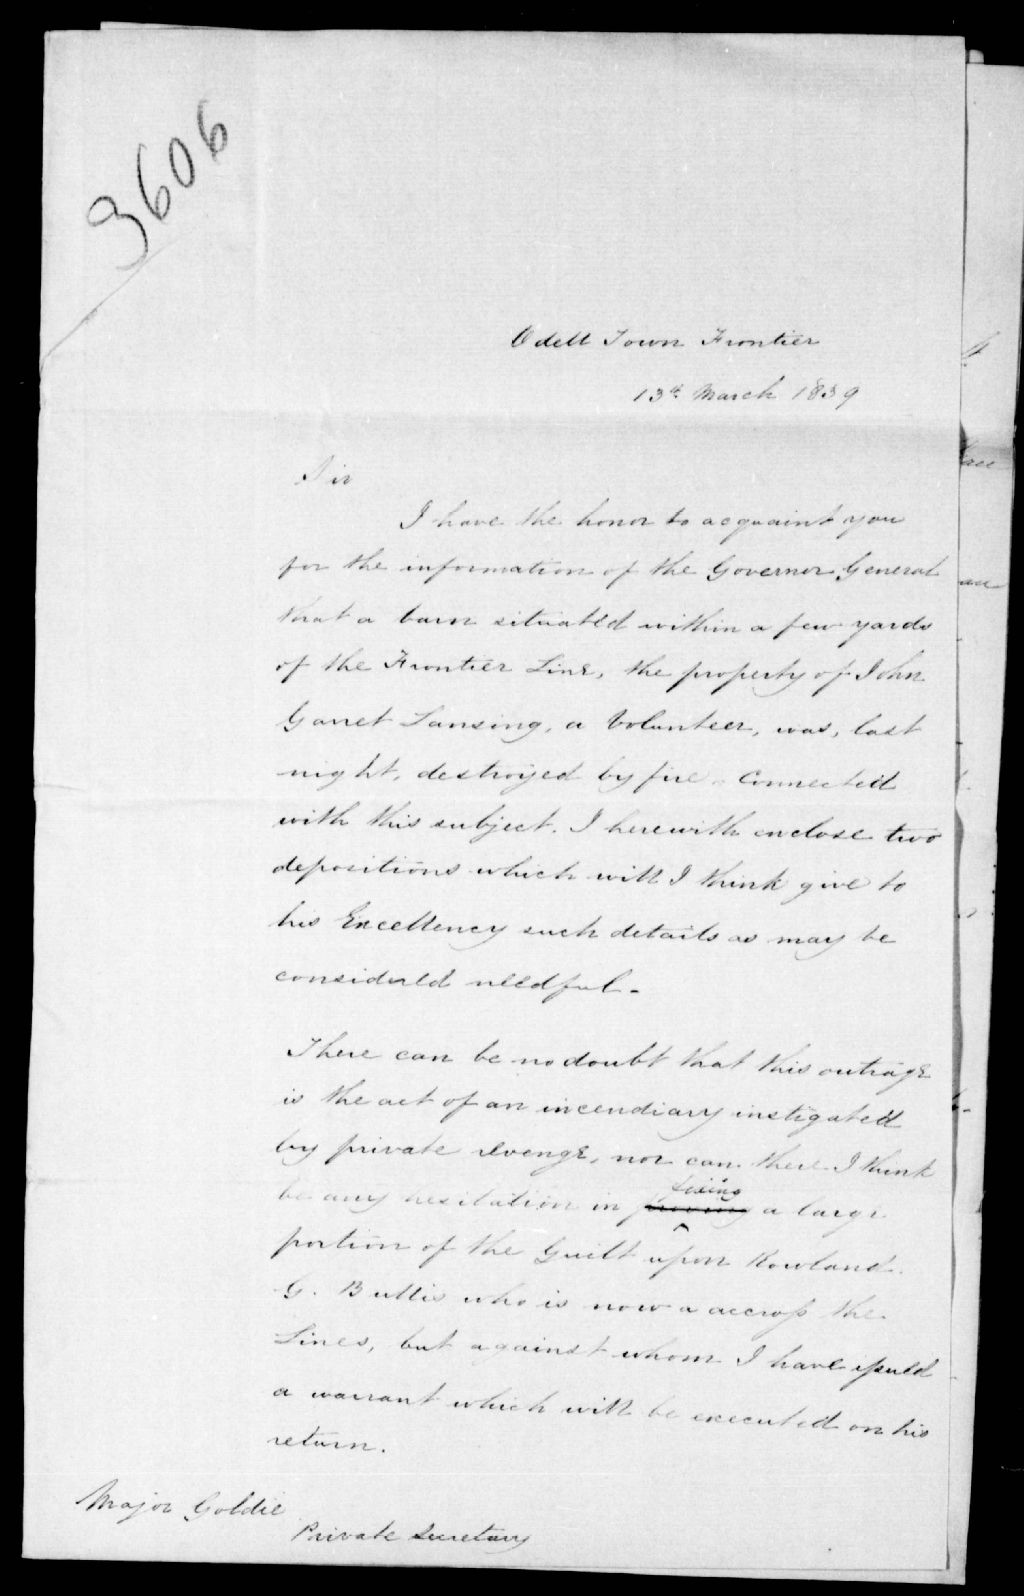 3606
Odell Town Frontier
13th March 1839
Sir
I have the honor to acquaint you
for the information of the Governor General
that a barn situated within a few yards
of the Frontier Line, the property of John
Garret Lansing, a Volunteer, was, last
night, destroyed by fire. Connected
with this subject. I herewith enclose two
depositions which will I think give to
his Excellency such details as may be
considered needful.
There can be no doubt that this outrage
is the act of an incendiary instigated
by private revenge, nor can there I think
fixing
be any hesitation in proving a large
portion of the Guilt upon Rowland
G. Buttis who is now a accross the
Lines, but against whom I have issued
a warrant which will be executed on his
return.
Major Goldie
Private Secretary